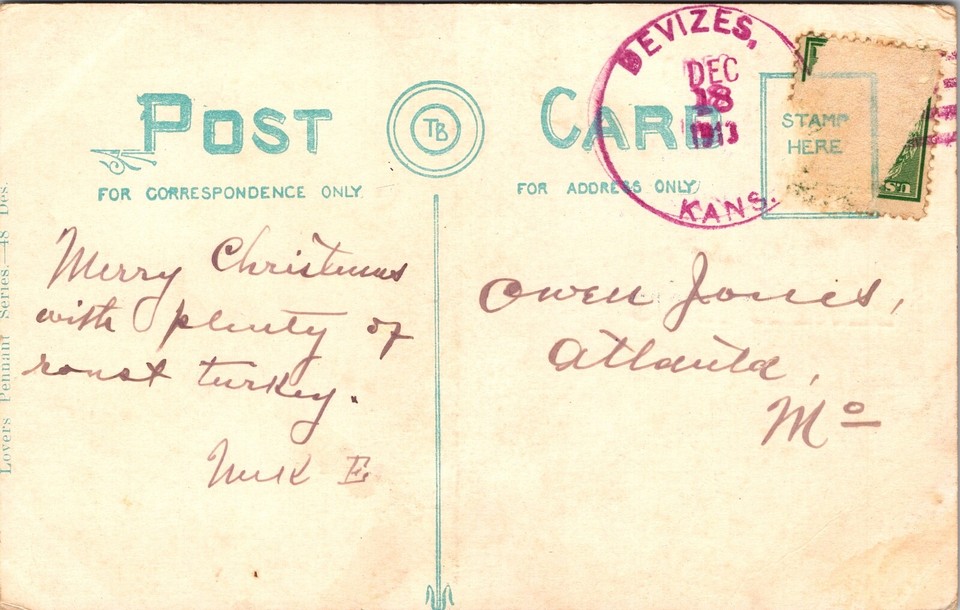 POST CARD
TB
FOR CORRESPONDENCE ONLY
FOR ADDRESS ONLY
DEVIZES,
DEC
18
1913
KANS.
STAMP
HERE
U.S.
Merry Christmas
with plenty of
roast turkey.
E
Owen Jones,
Atlanta,
Mo
Lovers Pennant Series.—48 Des.